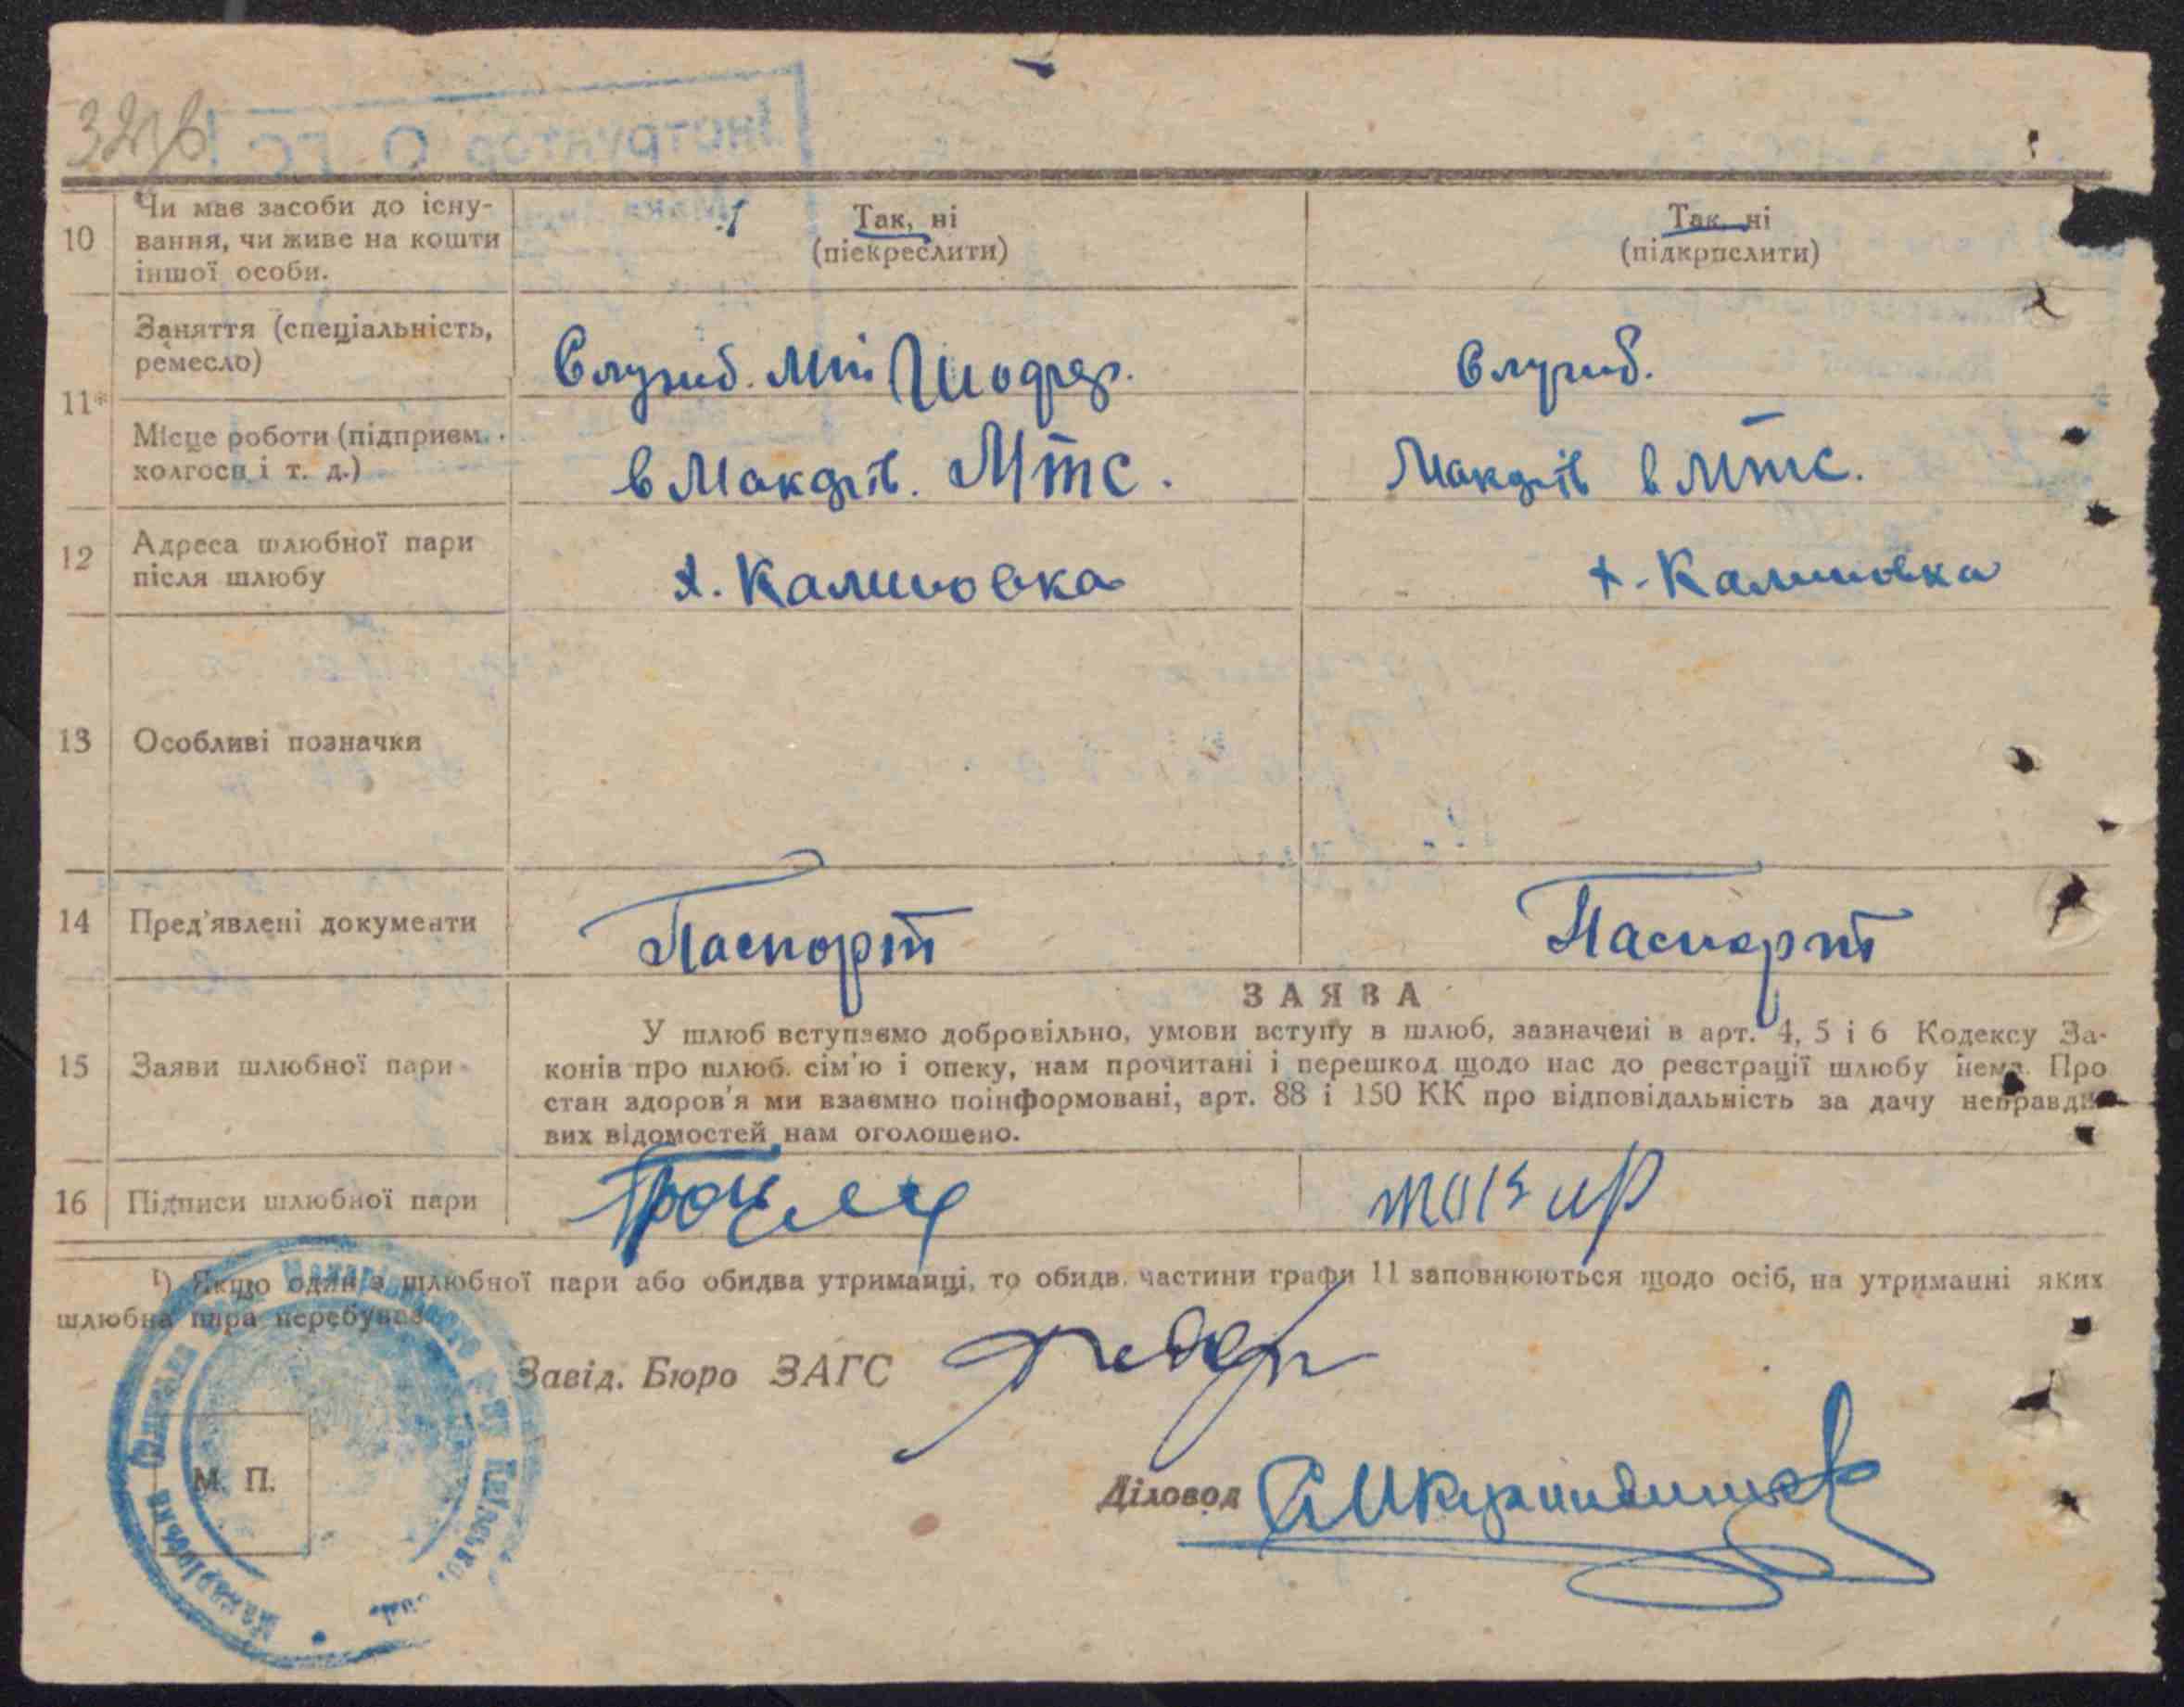 10
Чи має засоби до існу-
вання, чи живе на кошти
іншої особи.
Так, ні
(піекреслити)
Так, ні
(підкрпслити)
11*
Заняття (спеціальність,
ремесло)
Служб. Шофер.
Служб.
Місце роботи (підприєм.
колгосп і т. д.)
в Макарів. МТС.
Макарів в МТС.
12
Адреса шлюбної пари
після шлюбу
х. Калиновка
х. Калиновка
13
Особливі позначки
14
Пред'явлені документи
Паспорт
Паспорт
15
Заяви шлюбної пари
ЗАЯВА
У шлюб вступаємо добровільно, умови вступу в шлюб, зазначені в арт. 4, 5 і 6 Кодексу За-
конів про шлюб. сім'ю і опеку, нам прочитані і перешкод щодо нас до реєстрації шлюбу нема. Про
стан здоров'я ми взаємно поінформовані, арт. 88 і 150 КК про відповідальність за дачу неправди-
вих відомостей нам оголошено.
16
Підписи шлюбної пари
¹) Якщо один з шлюбної пари або обидва утриманці, то обидв. частини графи 11 заповнюються щодо осіб, на утриманні яких
шлюбна пара перебуває
Завід. Бюро ЗАГС
М. П.
Діловод